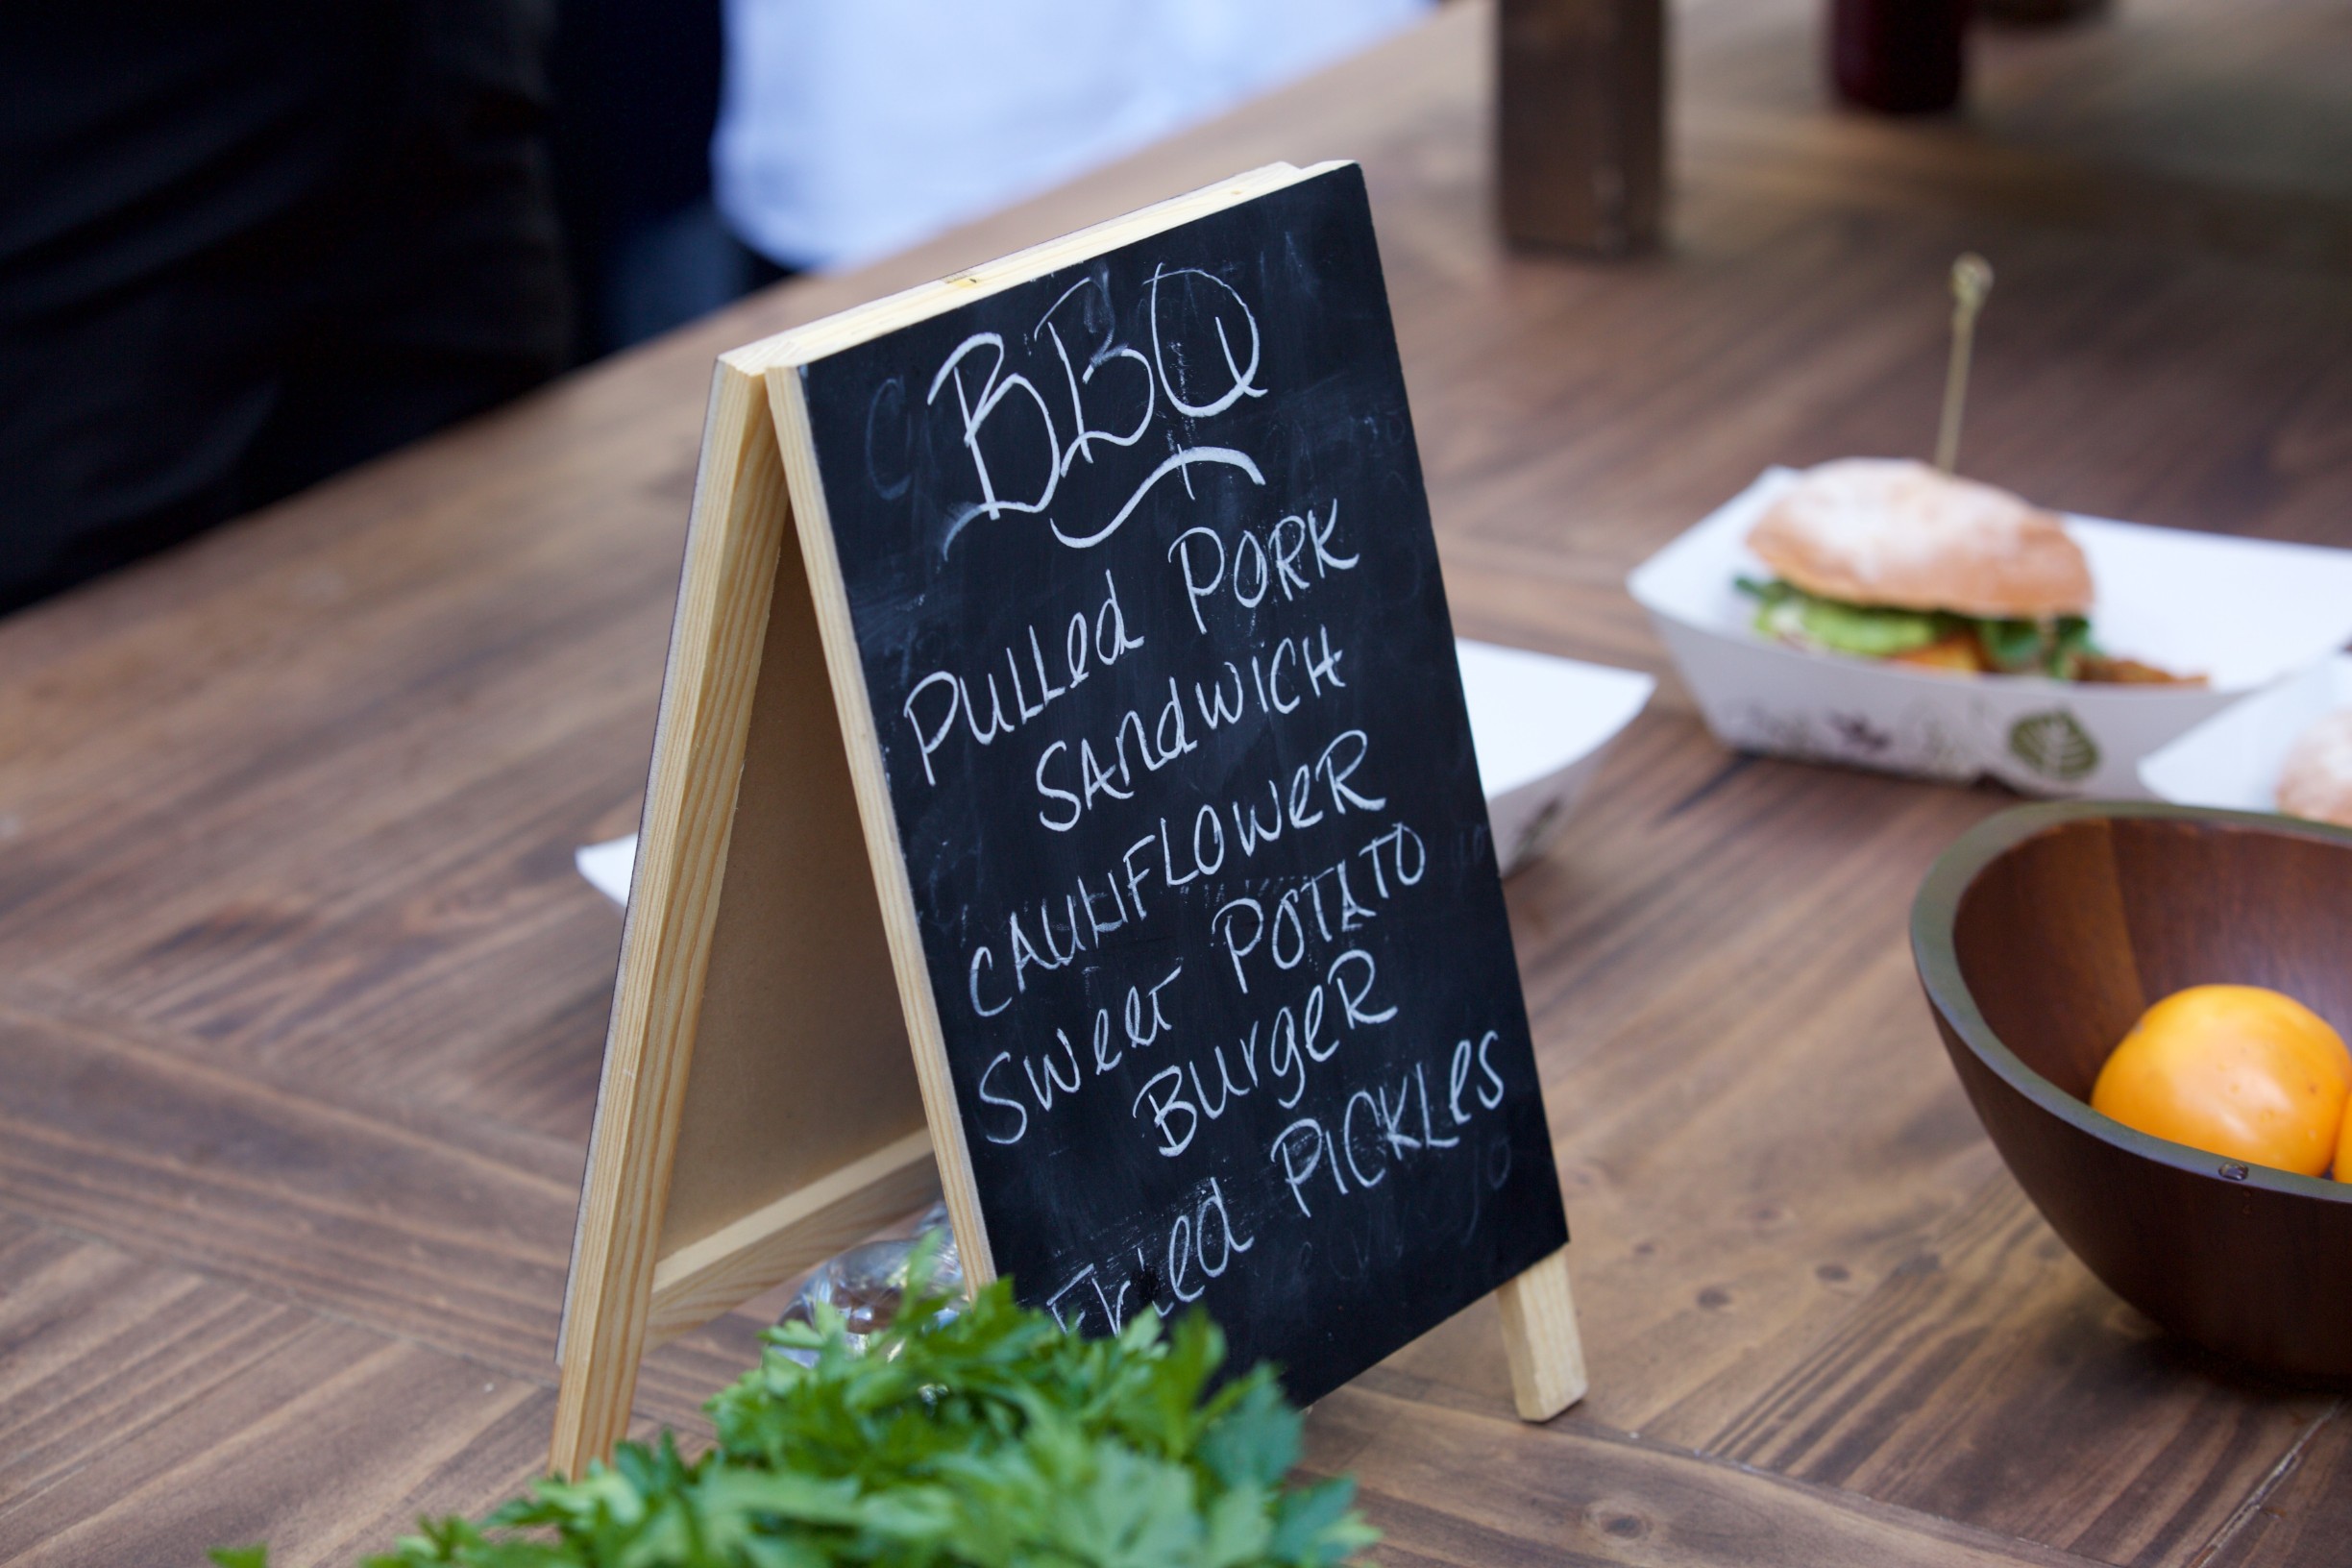 BBQ
PULLed PORK
SANdwICH
CAULIFLOWeR
Sweet POTATO
BurgeR
Fried PICKLes